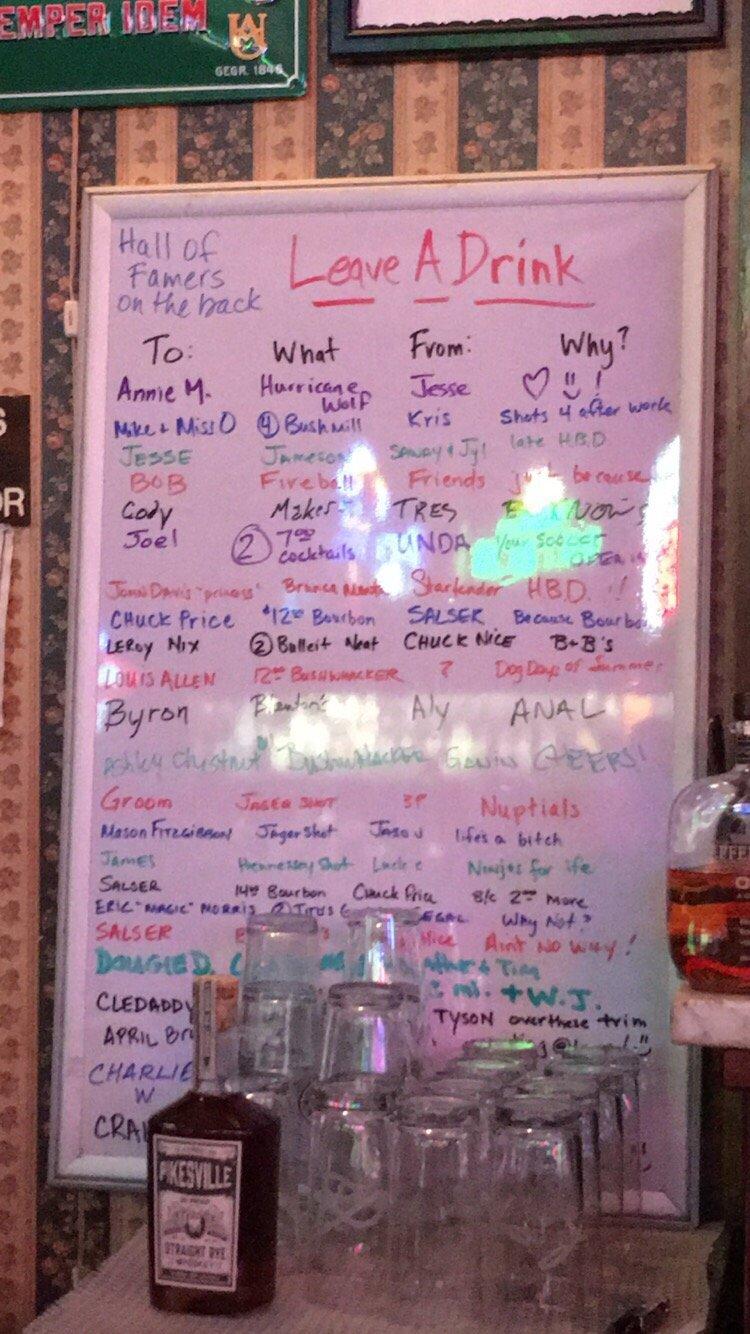 SEMPER IDEM
GEGR. 1846
Hall of
Famers
on the back
Leave A Drink
To: What From: Why?
Annie M. Hurricane Wolf Jesse ♡ !
Mike + Miss O ④ Bushmill Kris Shots 4 after work
JESSE Jameson SANDY + Jyl late H.B.D
BOB Fireball Friends just because
Cody Maker's TRES
Joel ② 7⁰⁰ cocktails UNDA Your soccer
John Davis "princess" Branca Menta Startender H.B.D. !!
CHUCK Price $12⁰⁰ Bourbon SALSER Because Bourbon
LEROY NIX ② Bulleit Neat CHUCK NICE B+B's
LOUIS ALLEN 12⁰⁰ BUSHWHACKER ? Dog Days of Summer
Byron Blanton's Aly ANAL
Ashley Chestnut Bushwhacker Gavin CHEERS!
Groom JAGER SHOT Nuptials
Mason FITZGIBBON Jäger Shot Jason life's a bitch
JAMES Hennessey Shot Luck Ninjas for life
SALSER 14⁰⁰ Bourbon Chuck Price B/c 2⁰⁰ More
ERIC "MAGIC" MORRIS ② Titos EGAL Why Not?
SALSER Nice Ain't NO WAY!
DOUGIE D. + Tim
+ W.J.
CLEDADDY TYSON over these trim
APRIL
CHARLIE
W
CRA
PIKESVILLE
STRAIGHT RYE
WHISKEY